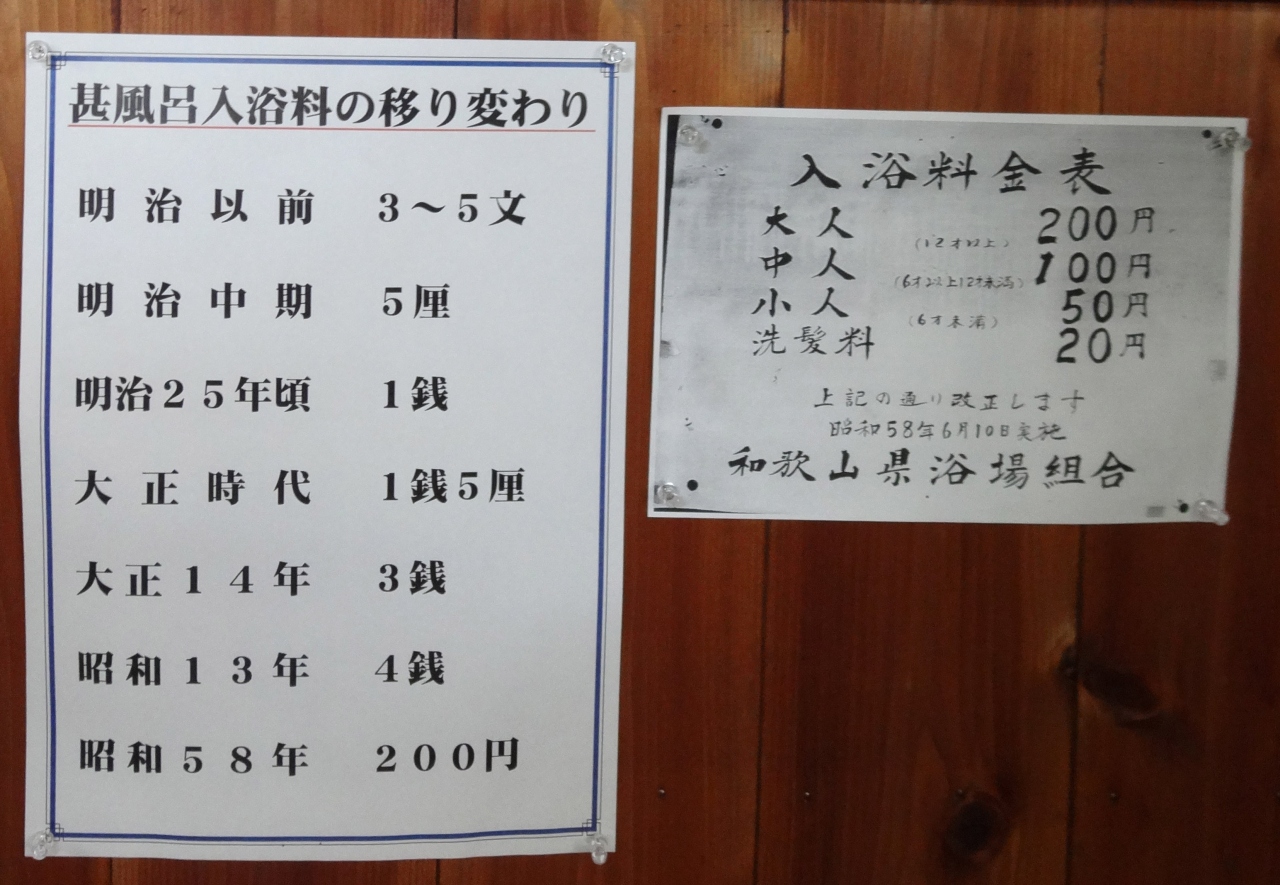 甚風呂入浴料の移り変わり
明治以前 3～5文
明治中期 5厘
明治25年頃 1銭
大正時代 1銭5厘
大正14年 3銭
昭和13年 4銭
昭和58年 200円
入浴料金表
大人 (12才以上) 200円
中人 (6才以上12才未満) 100円
小人 (6才未満) 50円
洗髪料 20円
上記の通り改正します
昭和58年6月10日実施
和歌山県浴場組合